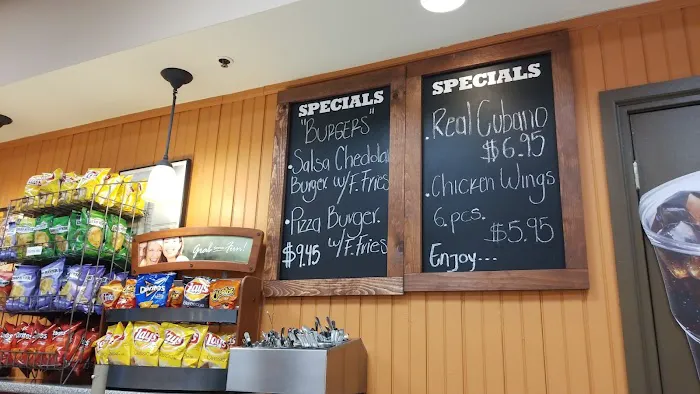 SPECIALS
"BURGERS"
• Salsa Cheddar
Burger w/F. Fries
• Pizza Burger
w/F. Fries
$9.45
SPECIALS
• Real Cubano
$6.95
• Chicken Wings
6.pcs.
$5.95
Enjoy---
Grab Fun!
Doritos
Lay's
Cheetos
Lay's
Lay's
Lay's